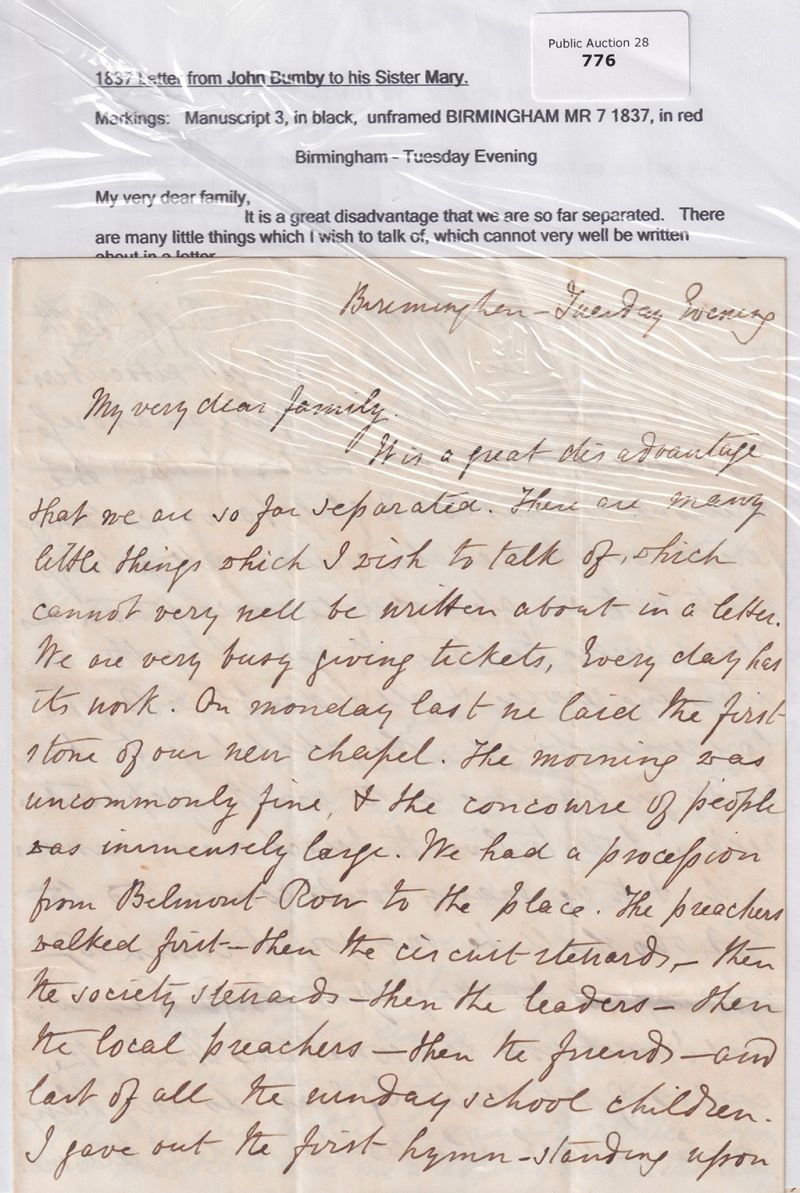 Public Auction 28
776
1837 Letter from John Bumby to his Sister Mary.
Markings: Manuscript 3, in black, unframed BIRMINGHAM MR 7 1837, in red
Birmingham – Tuesday Evening
My very dear family,
It is a great disadvantage that we are so far separated. There
are many little things which I wish to talk of, which cannot very well be written
about in a letter
Birmingham – Tuesday Evening
My very dear family.
It is a great disadvantage
that we are so far separated. There are many
little things which I wish to talk of, which
cannot very well be written about in a letter.
We are very busy giving tickets, Every day has
its work. On monday last we laid the first
stone of our new chapel. The morning was
uncommonly fine, & the concourse of people
was immensely large. We had a procession
from Belmont Row to the place. The preachers
walked first – then the circuit stewards, – then
the society stewards – then the leaders – then
the local preachers – then the friends – and
last of all the sunday school children.
I gave out the first hymn – standing upon